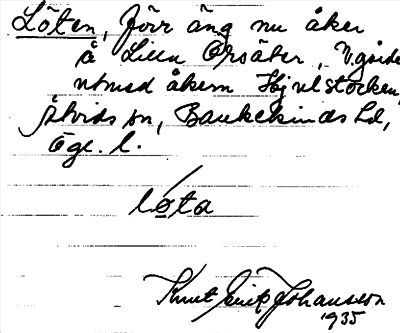 Löten, förr äng nu åker
å Lilla Örsäter, V. gården
utmed åkern Hjulstocken,
Åtvids sn, Bankekinds hd,
Ögl. l.
lota
Knut Erik Johansson
1935